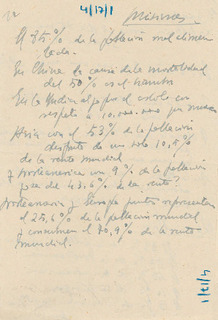 4/17/1
El 85% de la población mal alimen
tada.
En China la causa de la mortalidad
del 50% es el hambre
En la India
respeto a 10.000.000 por
Asia con el 53% de la población
disfruta de un solo 10,5%
de la renta mundial
y Norteamérica con 9% de la población
goza del 43,6% de la renta?
Norteamérica y Europa juntos representan
el 25,6% de la población mundial
y consumen el 70,9% de la renta
mundial.
4/17/1